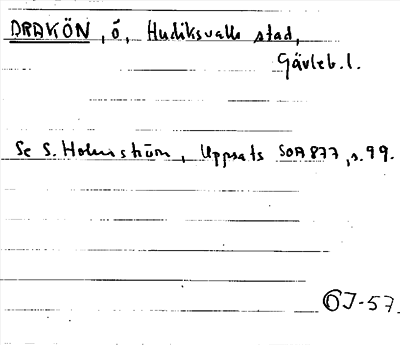 DRAKÖN, ö, Hudiksvalls stad,
Gävleb.l.
Se S. Holmström, Uppsats SOA 877, s. 99.
OJ-57.